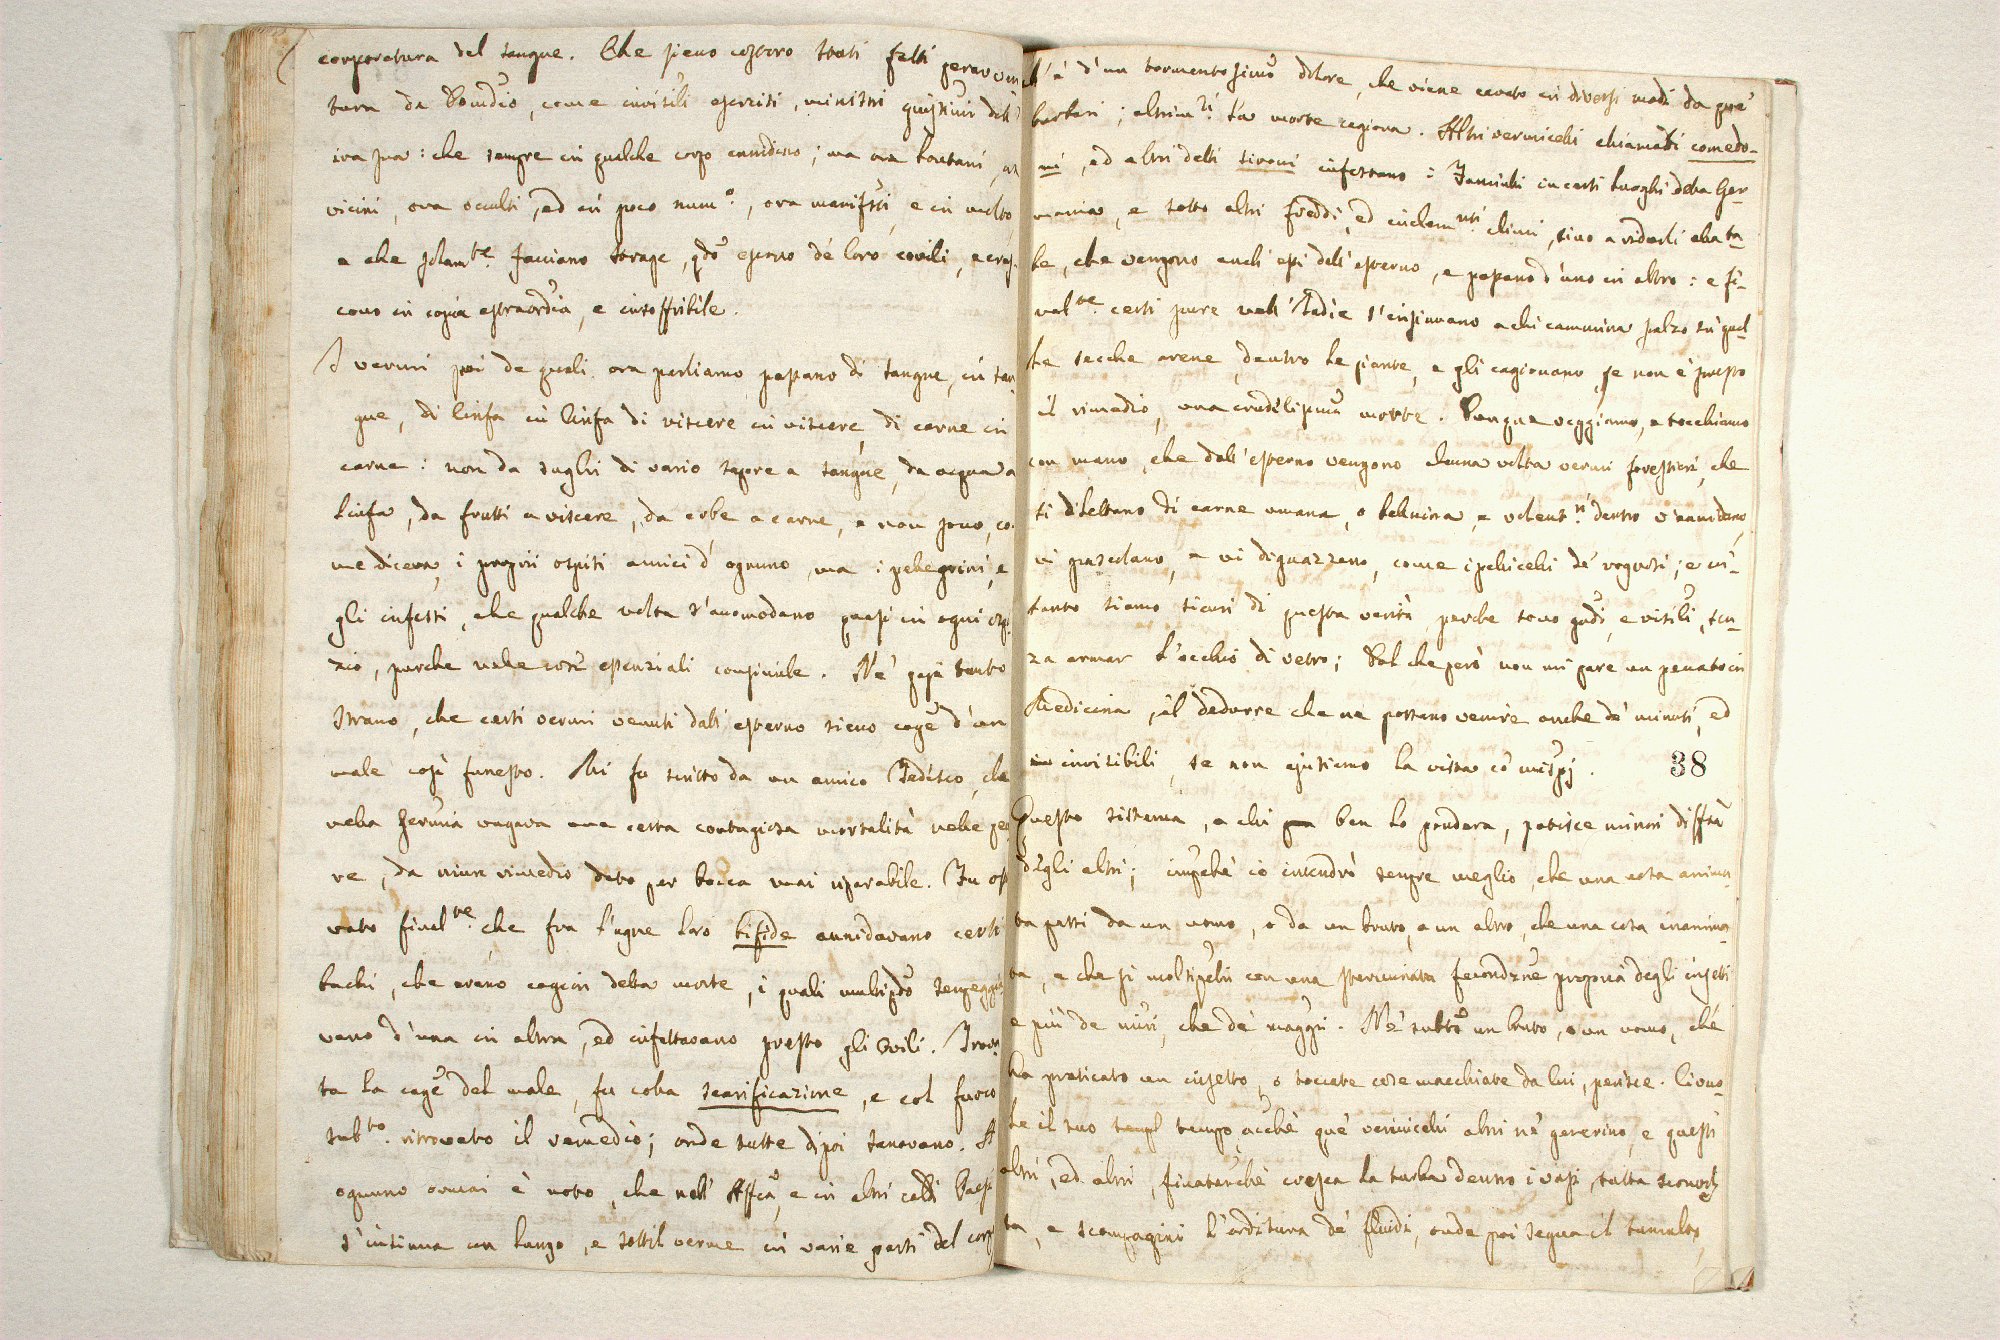 corporatura del sangue. Che sieno costoro stati fatti peravven
tura da Domidio, come invisibili eserciti, ministri giustissimi dell'
ira sua: che sempre in qualche corpo annidino; ma ora lontani, or
vicini, ora occulti, ed in poco num.o, ora manifesti, e in molto,
e che solam.te facciano strage, qdo escono de' loro covili, e cres
cono in copia estraordia, e insoffribile.
I vermi poi de quali ora parliamo passano di sangue, in san
gue, di linfa in linfa di viscere in viscere, di carne in
carne: non da sughi di vario sapore a sangue, da acqua a
linfa, da frutti a viscere, da erbe a carne, e non sono, co
me diceva, i proprii ospiti amici d'ognuno, ma i pellegrini, e
gli infesti, che qualche volta s'accomodano quasi in ogni ospi
zio, purche nelle cose essenziali consimile. Nè paja tanto
strano, che certi vermi venuti dall'esterno sieno cage d'un
male così funesto. Mi fu scritto da un amico Tedesco, che
nella Germania vagava una certa contagiosa mortalità nelle peco
re, da niun rimedio dato per bocca mai riparabile. Fu osser
vato final.te che fra l'ugne loro bifide annidavano certi
bachi, che erano cagion della morte, i quali multipdo serpeggia
vano d'una in altra, ed infettavano presto gli Ovili. Trova
ta la cage del male, fu colla scarificazione, e col fuoco
sub.to ritrovato il remedio; onde tutte dipoi sanavano. A
ognuno ormai è noto, che nell'Affrica, e in altri caldi Paesi
s'insinua un lungo, e sottil verme in varie parti del corpo
ch'è d'un tormentosissimo dolore, che viene cavato in diversi modi da que'
barbari; altrim.ti la morte cagiona. Altri vermicelli chiamati comedo-
ni, ed altri detti sironi infestano i Fanciulli in certi luoghi della Ger
mania, e sotto altri freddi, ed inclem.nti climi, sino a ridurli alla ta
be, che vengono anch'essi dall'esterno, e passano d'uno in altro: e fi-
nal.te certi pure nell'Indie s'insinuano a chi cammina scalzo su quel
le secche arene, dentro le piante, e gli cagionano, se non è presto
il rimedio, una crudelissima morte. Dunque veggiamo, e tocchiamo
con mano, che dall'esterno vengono alcuna volta vermi forestieri, che
si dilettano di carne umana, o belluina, e volent.ri dentro v'annidano,
vi pascolano, e vi diguazzano, come i pellicelli de' rognosi; e in-
tanto siamo sicuri di questa verità, perche sono gndi, e visibili, sen-
za armar l'occhio di vetro; Dal che però non mi pare un peccato in
Medicina, il dedurre che ne possano venire anche de' minuti, ed
invisibili, se non ajutiamo la vista co' miscpj.
38
Questo sistema, a chi ben lo pondera, patisce minori difficoltà
degli altri; impchè io intendrò sempre meglio, che una cosa anima-
ta passi da un uomo, o da un bruto, a un altro, che una cosa inanima-
ta, e che si moltiplichi con una sterminata fecondzne propria degli insetti
e più de minri, che de' maggri. Nè subito un bruto, o un uomo, che
ha praticato un infetto, o toccate cose macchiate da lui, perisce. Ci vuo-
le il suo tempo acchè que' vermicelli altri ne generino, e questi
altri, ed altri, finatanchè cresca la turba dentro i vasi, tutta sconvol
ta, e scompagini l'orditura de' fluidi, onde poi segua il tumulto,